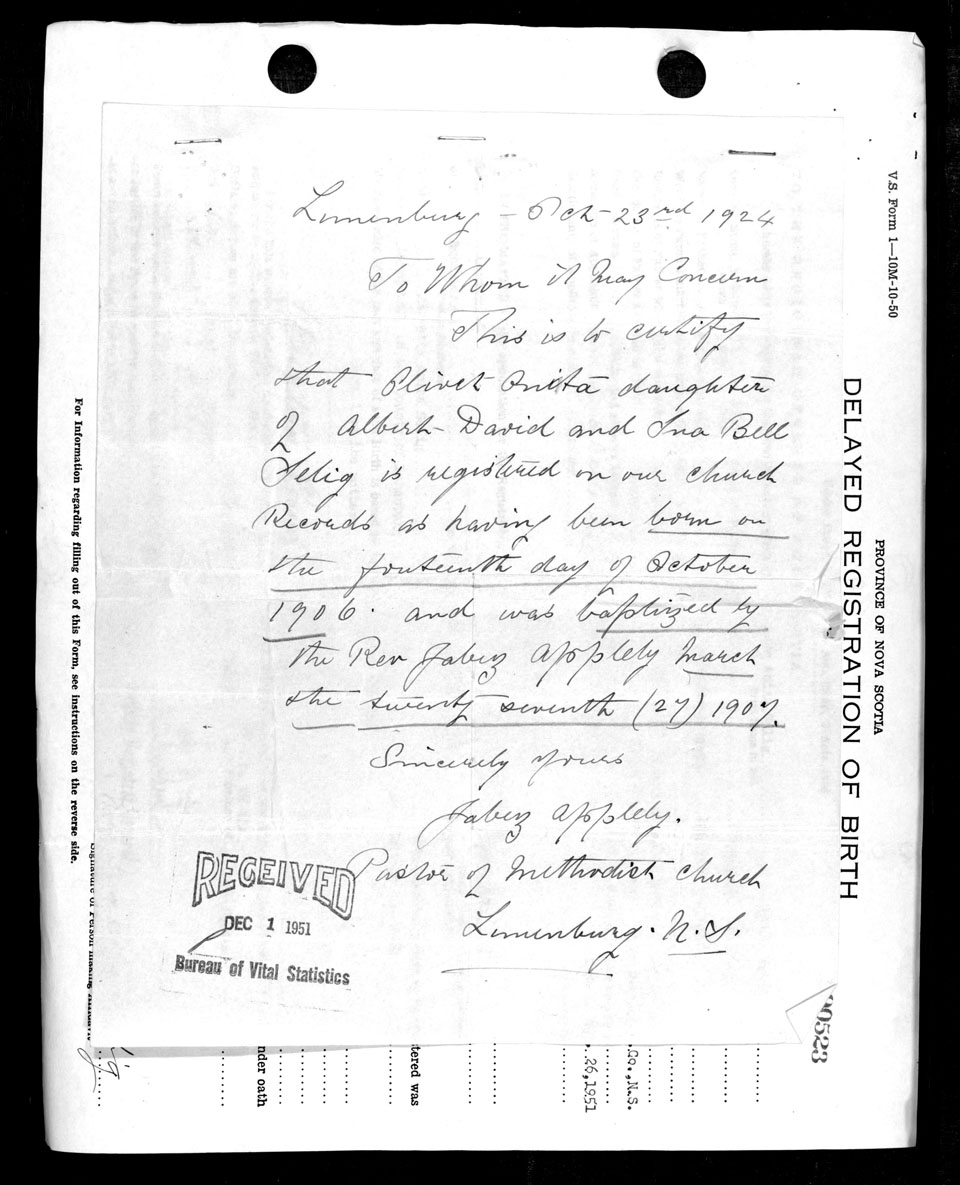 Lunenburg - Oct - 23rd 1924
To Whom it May Concern
This is to certify
that Olivet Onita daughter
of Albert David and Ina Bell
Selig is registered on our church
Records as having been born on
the fouteenth day of October
1906. and was baptized by
the Rev Jabez Applely March
the twenty seventh (27) 1907.
Sincerely yours
Jabez Applely.
Pastor of Methodist Church
Lunenburg. N. S.
RECEIVED
DEC 1 1951
Bureau of Vital Statistics
V.S. Form 1—10M-10-50
PROVINCE OF NOVA SCOTIA
DELAYED REGISTRATION OF BIRTH
00523
Co., N.S.
26, 1951
tered was
nder oath
Signature of Person making Affidavit
For Information regarding filling out of this Form, see instructions on the reverse side.